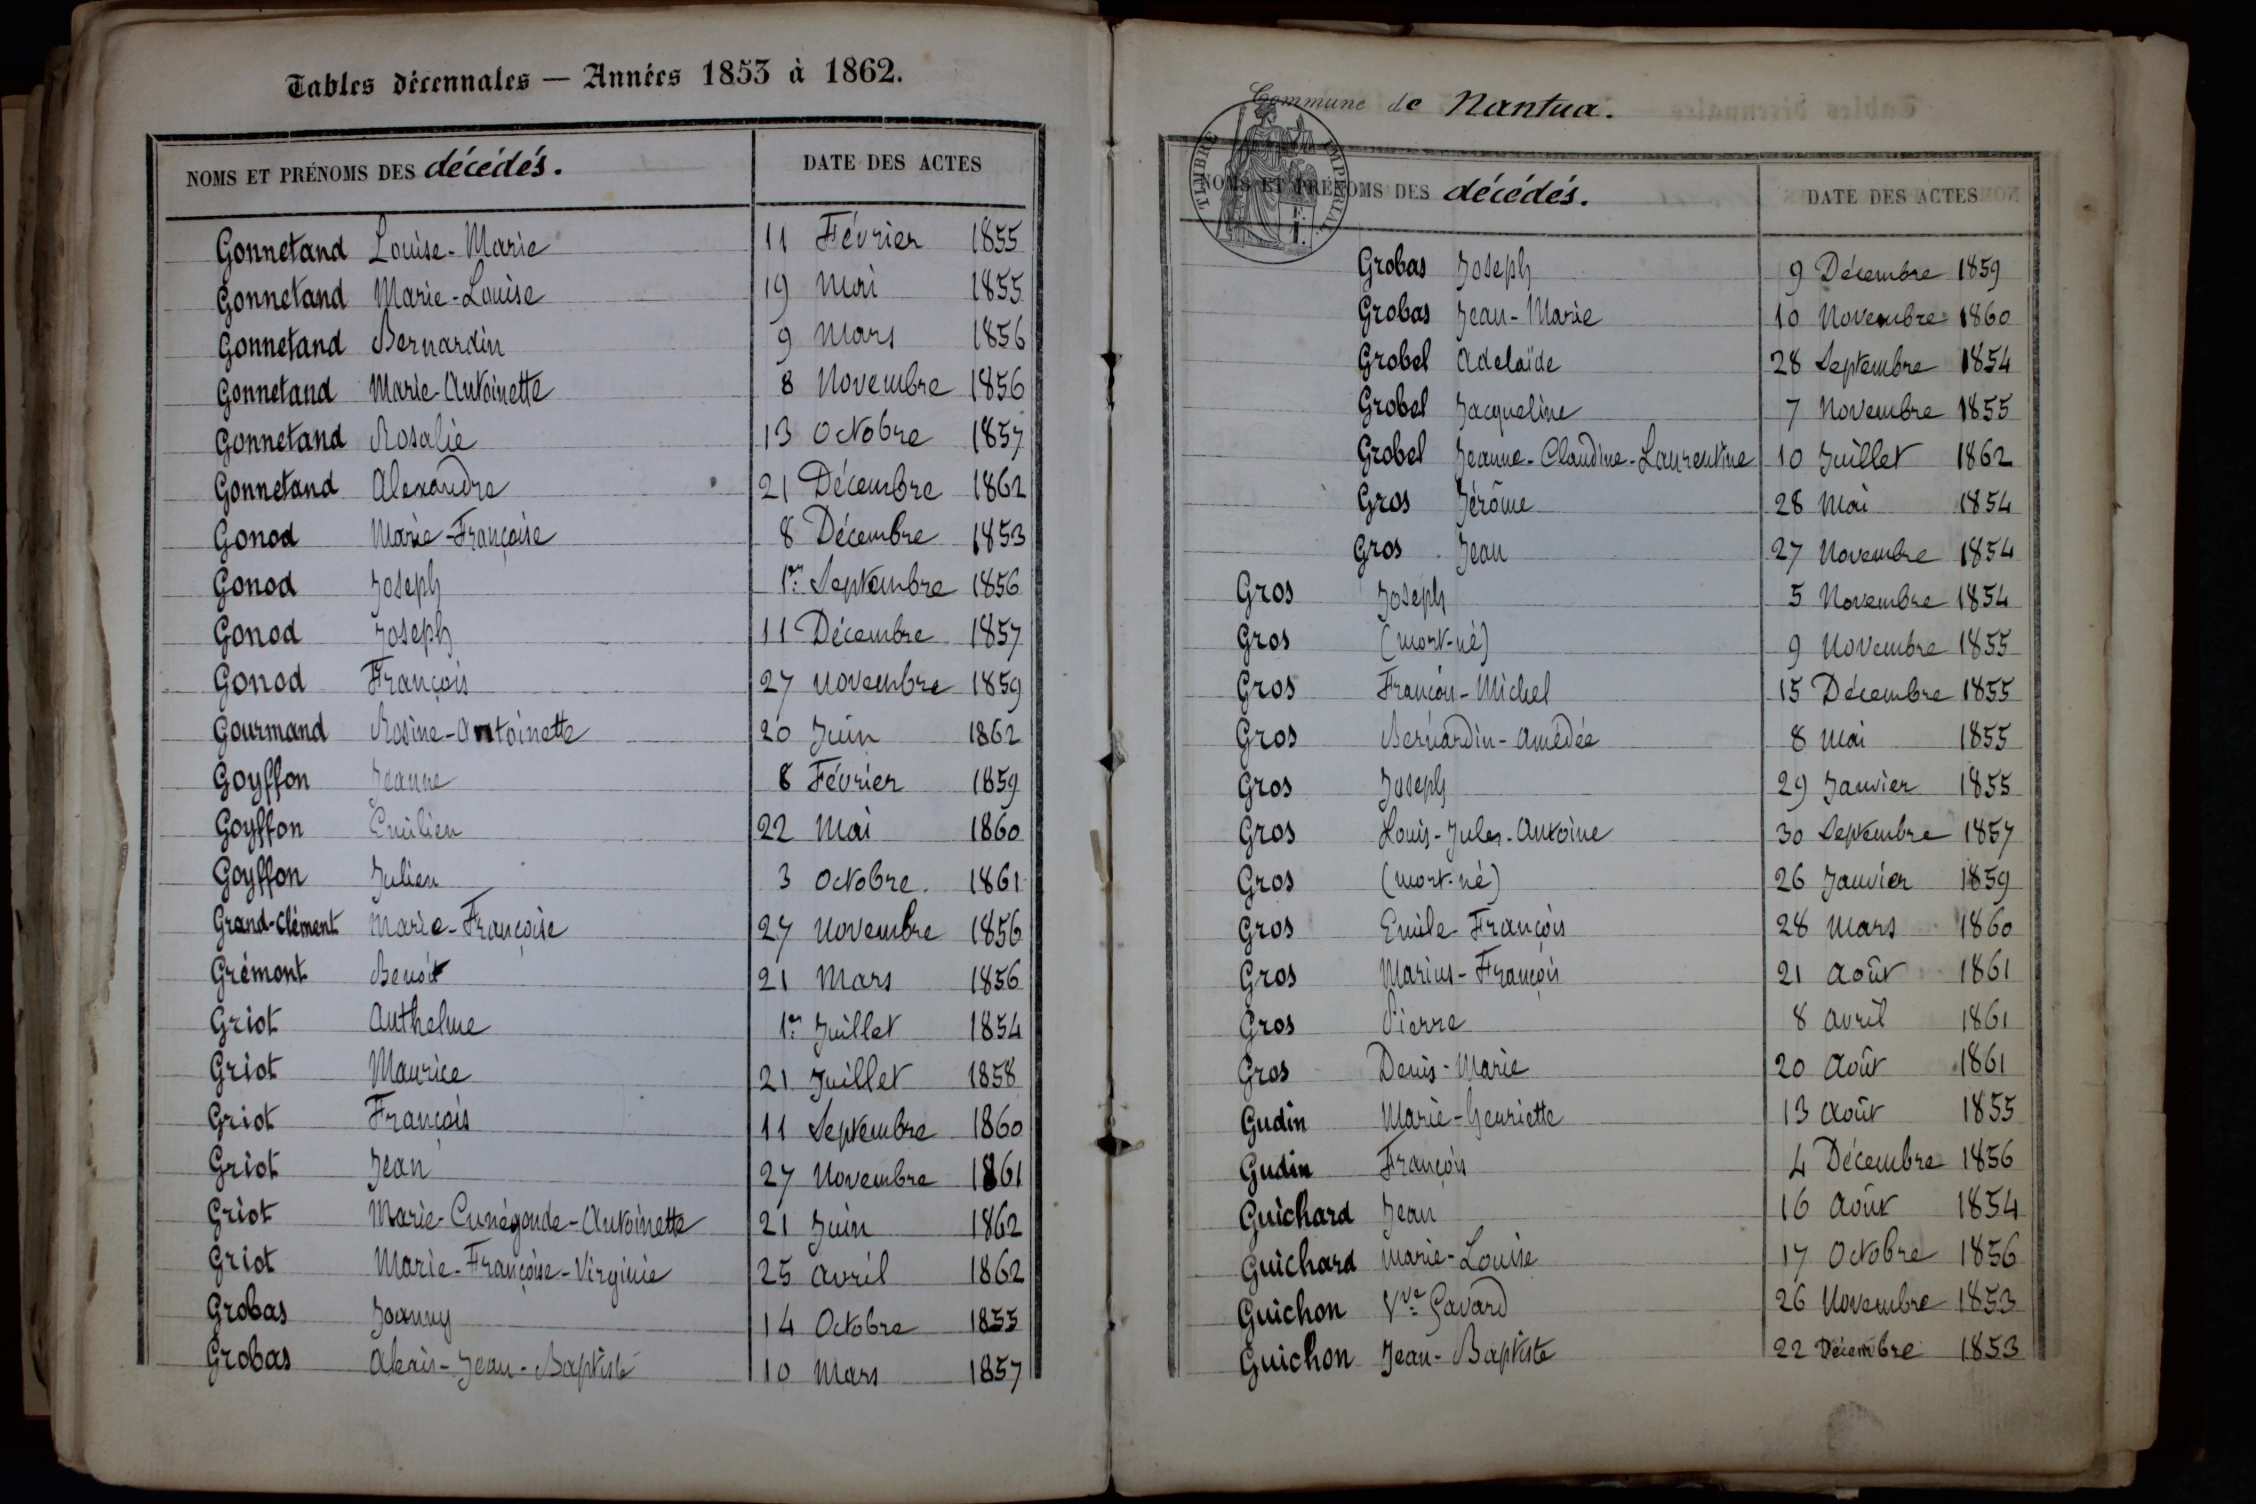 Tables décennales — Années 1853 à 1862.
NOMS ET PRÉNOMS DES décédés. DATE DES ACTES
Gonnetand Louise-Marie 11 Février 1855
Gonnetand Marie-Louise 19 Mai 1855
Gonnetand Bernardin 9 Mars 1856
Gonnetand Marie-Antoinette 8 Novembre 1856
Gonnetand Rosalie 13 Octobre 1857
Gonnetand Alexandre 21 Décembre 1862
Gonod Marie-Françoise 8 Décembre 1853
Gonod Joseph 1er Septembre 1856
Gonod Joseph 11 Décembre 1857
Gonod François 27 Novembre 1859
Gourmand Rosine-Antoinette 20 Juin 1862
Goyffon Jeanne 8 Février 1859
Goyffon Emilien 22 Mai 1860
Goyffon Julien 3 Octobre. 1861
Grand-Clément Marie-Françoise 27 Novembre 1856
Grémont Benoit 21 Mars 1856
Griot Anthelme 1er Juillet 1854
Griot Maurice 21 Juillet 1858
Griot François 11 Septembre 1860
Griot Jean 27 Novembre 1861
Griot Marie-Cunégonde-Antoinette 21 Juin 1862
Griot Marie-Françoise-Virginie 25 Avril 1862
Grobas Joanny 14 Octobre 1855
Grobas Alexis-Jean-Baptiste 10 Mars 1857
Commune de Nantua.
TIMBRE IMPERIAL
NOMS ET PRÉNOMS DES décédés. DATE DES ACTES
Grobas Joseph 9 Décembre 1859
Grobas Jean-Marie 10 Novembre 1860
Grobel Adelaïde 28 Septembre 1854
Grobel Jacqueline 7 Novembre 1855
Grobel Jeanne-Claudine-Laurentine 10 Juillet 1862
Gros Jérôme 28 Mai 1854
Gros Jean 27 Novembre 1854
Gros Joseph 5 Novembre 1854
Gros (mort-né) 9 Novembre 1855
Gros François-Michel 15 Décembre 1855
Gros Bernardin-Amédée 8 Mai 1855
Gros Joseph 29 Janvier 1855
Gros Louis-Jules-Antoine 30 Septembre 1857
Gros (mort-né) 26 Janvier 1859
Gros Emile-François 28 Mars 1860
Gros Marius-François 21 Août 1861
Gros Pierre 8 Avril 1861
Gros Denis-Marie 20 Août 1861
Gudin Marie-Henriette 13 Août 1855
Gudin François 4 Décembre 1856
Guichard Jean 16 Août 1854
Guichard Marie-Louise 17 Octobre 1856
Guichon Vve Gavard 26 Novembre 1853
Guichon Jean-Baptiste 22 Décembre 1853